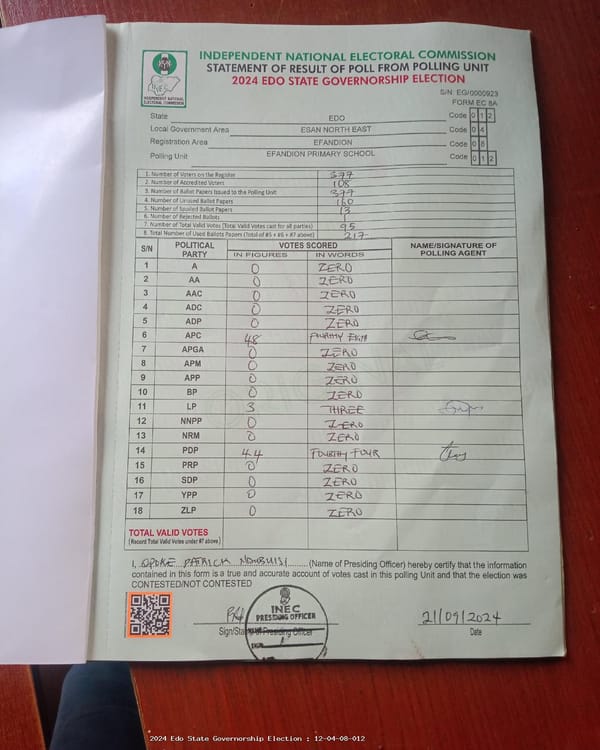 INDEPENDENT NATIONAL ELECTORAL COMMISSION
STATEMENT OF RESULT OF POLL FROM POLLING UNIT
2024 EDO STATE GOVERNORSHIP ELECTION
INDEPENDENT NATIONAL ELECTORAL COMMISSION
S/N: EG/0000923
FORM EC 8A
State EDO Code 0 1 2
Local Government Area ESAN NORTH EAST Code 0 4
Registration Area EFANDION Code 0 8
Polling Unit EFANDION PRIMARY SCHOOL Code 0 1 2
1. Number of Voters on the Register 377
2. Number of Accredited Voters 108
3. Number of Ballot Papers Issued to the Polling Unit 377
4. Number of Unused Ballot Papers 160
5. Number of Spoiled Ballot Papers 13
6. Number of Rejected Ballots 1
7. Number of Total Valid Votes (Total Valid Votes cast for all parties) 95
8. Total Number of Used Ballots Papers (Total of #5 + #6 + #7 above) 217
S/N POLITICAL PARTY VOTES SCORED NAME/SIGNATURE OF POLLING AGENT
IN FIGURES IN WORDS
1 A 0 ZERO
2 AA 0 ZERO
3 AAC 0 ZERO
4 ADC 0 ZERO
5 ADP 0 ZERO
6 APC 48 FOURTHY EIGHT
7 APGA 0 ZERO
8 APM 0 ZERO
9 APP 0 ZERO
10 BP 0 ZERO
11 LP 3 THREE
12 NNPP 0 ZERO
13 NRM 0 ZERO
14 PDP 44 FOURTHY FOUR
15 PRP 0 ZERO
16 SDP 0 ZERO
17 YPP 0 ZERO
18 ZLP 0 ZERO
TOTAL VALID VOTES
(Record Total Valid Votes under #7 above)
I, PATRICK (Name of Presiding Officer) hereby certify that the information
contained in this form is a true and accurate account of votes cast in this polling Unit and that the election was
CONTESTED/NOT CONTESTED
INEC
PRESIDING OFFICER
21/09/2024
Sign/Stamp of Presiding Officer Date
2024 Edo State Governorship Election : 12-04-08-012